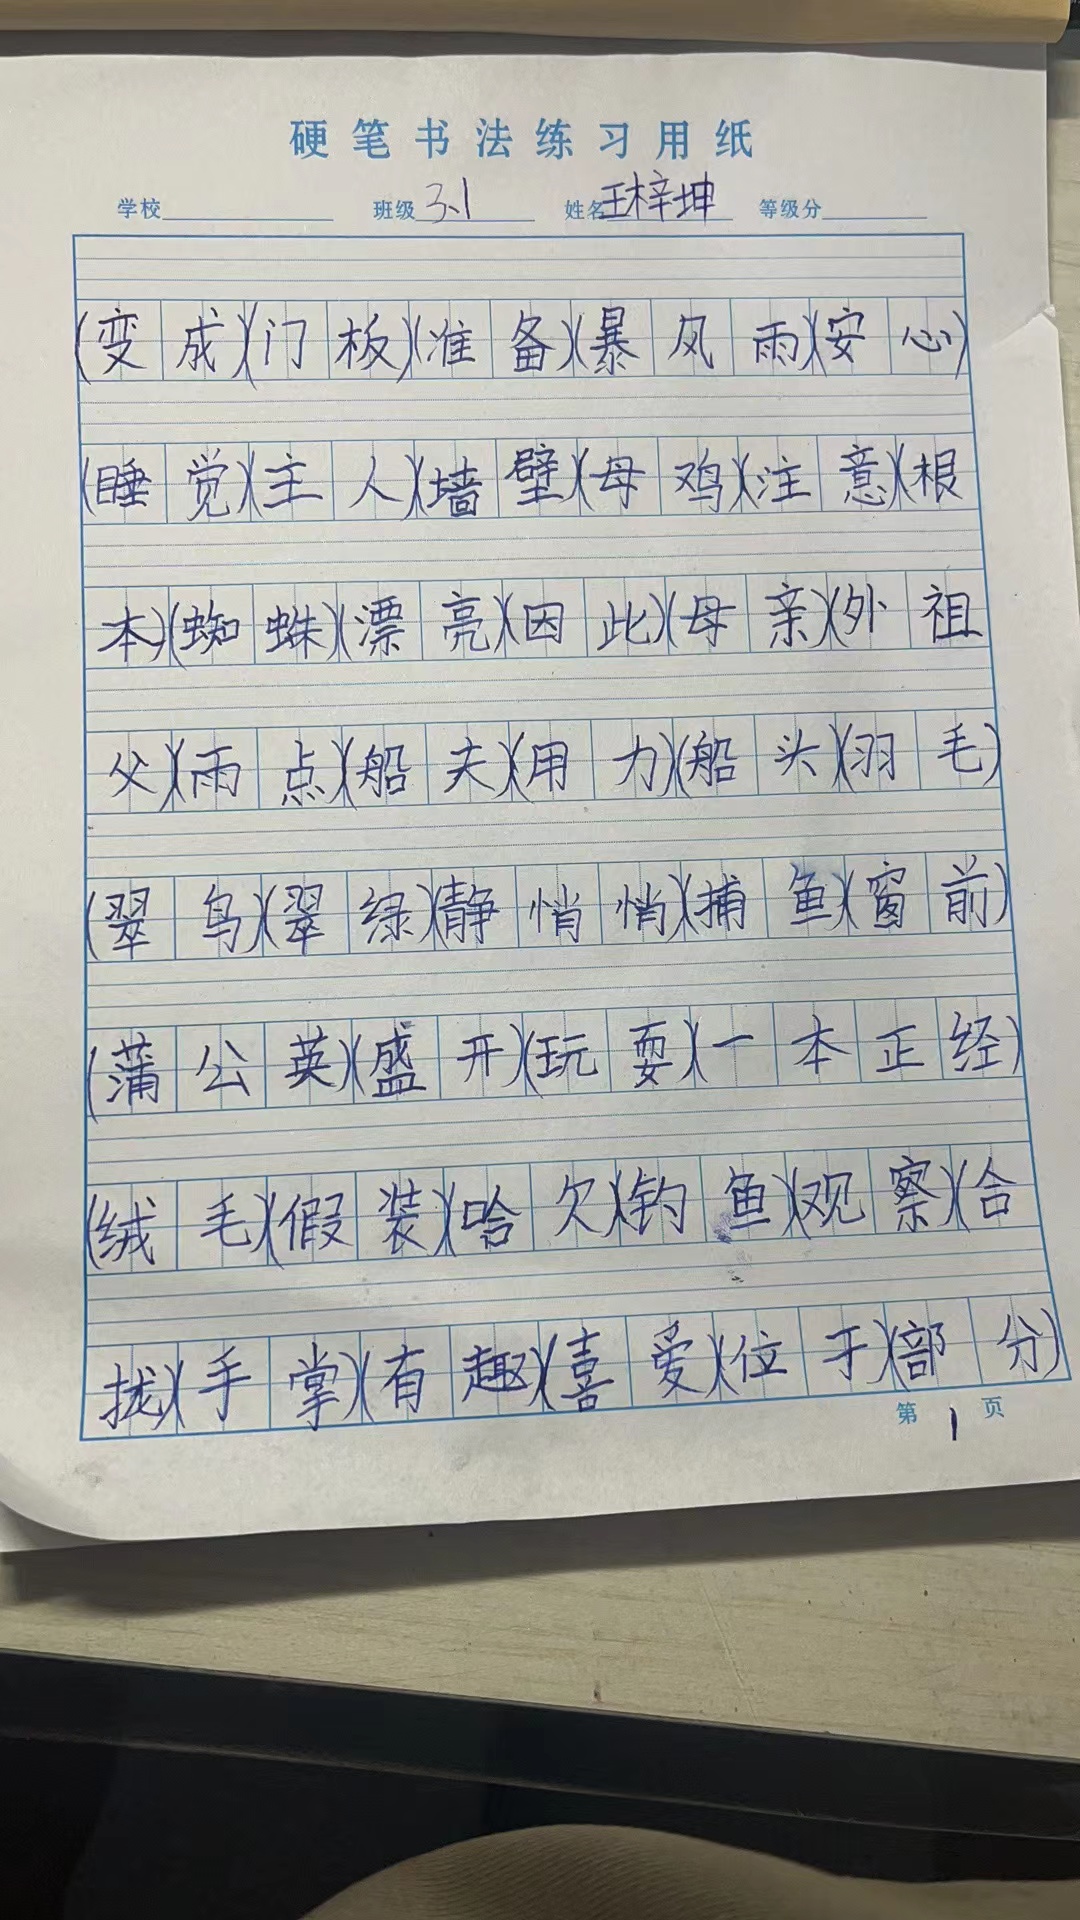 硬笔书法练习用纸
学校 班级 3.1 姓名 王梓坤 等级分
(变成)(门板)(准备)(暴风雨)(安心)
(睡觉)(主人)(墙壁)(母鸡)(注意)(根
本)(蜘蛛)(漂亮)(因此)(母亲)(外祖
父)(雨点)(船夫)(用力)(船头)(羽毛)
(翠鸟)(翠绿)(静悄悄)(捕鱼)(窗前)
(蒲公英)(盛开)(玩耍)(一本正经)
(绒毛)(假装)(哈欠)(钓鱼)(观察)(合
拢)(手掌)(有趣)(喜爱)(位于)(部分)
第 1 页